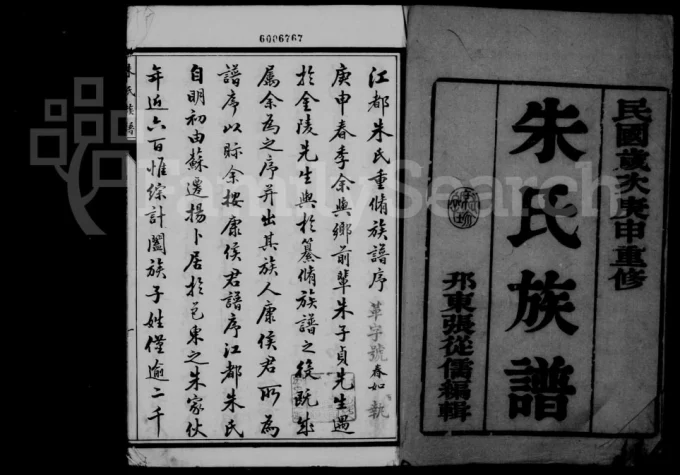 民國歲次庚申重修
朱氏族譜
邗東張從儒編輯
6006767
江都朱氏重脩族譜序 草字號 春如 執
庚申春季余與鄉前輩朱子貞先生遇
於金陵先生與於纂脩族譜之役既成
屬余為之序并出其族人康侯君所為
譜序以眎余按康侯君譜序江都朱氏
自明初由蘇遷揚卜居於邑東之朱家伙
年近六百惟綜計闔族子姓僅逾二千
朱氏族譜
FamilySearch